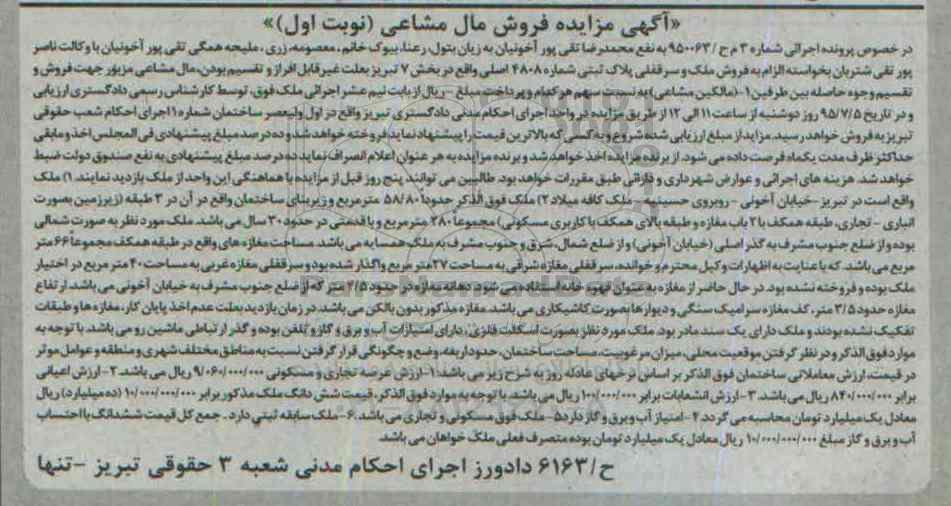 «آگهی مزایده فروش مال مشاعی (نوبت اول)»
در خصوص پرونده اجرائی شماره ۳ م ح / ۹۵۰۰۶۳ به نفع محمدرضا تقی پور آخونیان به زیان بتول، رعنا، بیوک خانم، معصومه، زری، ملیحه همگی تقی پور آخونیان با وکالت ناصر
پور تقی شتربان بخواسته الزام به فروش ملک و سرقفلی پلاک ثبتی شماره ۴۸۰۸ اصلی واقع در بخش ۷ تبریز بعلت غیر قابل افراز و تقسیم بودن، مال مشاعی مزبور جهت فروش و
تقسیم وجوه حاصله بین طرفین ۱- (مالکین مشاعی) به نسبت سهم هر کدام و پرداخت مبلغ – ریال از بابت نیم عشر اجرائی ملک فوق، توسط کارشناس رسمی دادگستری ارزیابی
و در تاریخ ۹۵/۷/۵ روز دوشنبه از ساعت ۱۱ الی ۱۲ از طریق مزایده در واحد اجرای احکام مدنی دادگستری تبریز واقع در اول ولیعصر ساختمان شماره ۱ اجرای احکام شعب حقوقی
تبریز به فروش خواهد رسید. مزایده از مبلغ ارزیابی شده شروع و به کسی که بالاترین قیمت را پیشنهاد نماید فروخته خواهد شد و ده درصد مبلغ پیشنهادی فی المجلس اخذ و مابقی
حداکثر ظرف مدت یکماه فرصت داده می شود. از برنده مزایده اخذ خواهد شد و برنده مزایده به هر عنوان اعلام انصراف نماید ده درصد مبلغ پیشنهادی به نفع صندوق دولت ضبط
خواهد شد. هزینه های اجرائی و عوارض شهرداری و دارائی طبق مقررات خواهد بود. طالبین می توانند پنج روز قبل از مزایده با هماهنگی این واحد از ملک بازدید نمایند. ۱) ملک
واقع است در تبریز -خیابان آخونی – روبروی حسینیه – ملک کافه میلاد ۲) ملک فوق الذکر حدوداً ۵۸/۸۰ مترمربع و زیربنای ساختمان واقع در آن در ۳ طبقه (زیرزمین بصورت
انباری – تجاری، طبقه همکف با ۲ باب مغازه و طبقه بالای همکف با کاربری مسکونی) مجموعاً ۲۸۰ مترمربع و با قدمتی در حدود ۳۰ سال می باشد. ملک مورد نظر به صورت شمالی
بوده و از ضلع جنوب مشرف به گذر اصلی (خیابان آخونی) و از ضلع شمال، شرق و جنوب مشرف به ملک همسایه می باشد. مساحت مغازه های واقع در طبقه همکف مجموعاً ۶۶ متر
مربع می باشد. که با عنایت به اظهارات وکیل محترم و خوانده، سرقفلی مغازه شرقی به مساحت ۲۷ متر مربع واگذار شده بود و سرقفلی مغازه غربی به مساحت ۴۰ متر مربع در اختیار
ملک بوده و فروخته نشده بود. در حال حاضر از مغازه به عنوان قهوه خانه استفاده می شود. دهانه مغازه در حدود ۴/۵ متر که از ضلع جنوب مشرف به خیابان آخونی می باشد. ارتفاع
مغازه حدود ۳/۵ متر، کف مغازه سرامیک سنگی و دیوارها بصورت کاشیکاری می باشد. مغازه مذکور بدون بالکن می باشد. در زمان بازدید بعلت عدم اخذ پایان کار، مغازه ها و طبقات
تفکیک نشده بودند و ملک دارای یک سند مادر بود. ملک مورد نظر بصورت اسکلت فلزی، دارای امتیازات آب و برق و گاز و تلفن بوده و گذر ارتباطی ماشین رو می باشد. با توجه به
موارد فوق الذکر و در نظر گرفتن موقعیت محلی، میزان مرغوبیت، مساحت ساختمان، حدود اربعه، وضع و چگونگی قرار گرفتن نسبت به مناطق مختلف شهری و منطقه و عوامل موثر
در قیمت، ارزش معاملاتی ساختمان فوق الذکر بر اساس نرخهای عادله روز به شرح زیر می باشد: ۱-ارزش عرصه تجاری و مسکونی ۹/۰۶۰/۰۰۰/۰۰۰ ریال می باشد. ۲- ارزش اعیانی
برابر ۸۴۰/۰۰۰/۰۰۰ ریال می باشد. ۳- ارزش انشعابات برابر ۱۰۰/۰۰۰/۰۰۰ ریال می باشد. با توجه به موارد فوق الذکر، قیمت شش دانگ ملک مذکور برابر ۱۰/۰۰۰/۰۰۰/۰۰۰ (ده میلیارد) ریال
معادل یک میلیارد تومان محاسبه می گردد. ۴- امتیاز آب و برق و گاز دارد ۵- ملک فوق مسکونی و تجاری می باشد. ۶- ملک سابقه ثبتی دارد. جمع کل قیمت ششدانگ با احتساب
آب و برق و گاز مبلغ ۱۰/۰۰۰/۰۰۰/۰۰۰ ریال معادل یک میلیارد تومان بوده متصرف فعلی ملک خواهان می باشد.
ح/۶۱۶۳ دادورز اجرای احکام مدنی شعبه ۳ حقوقی تبریز -تنها